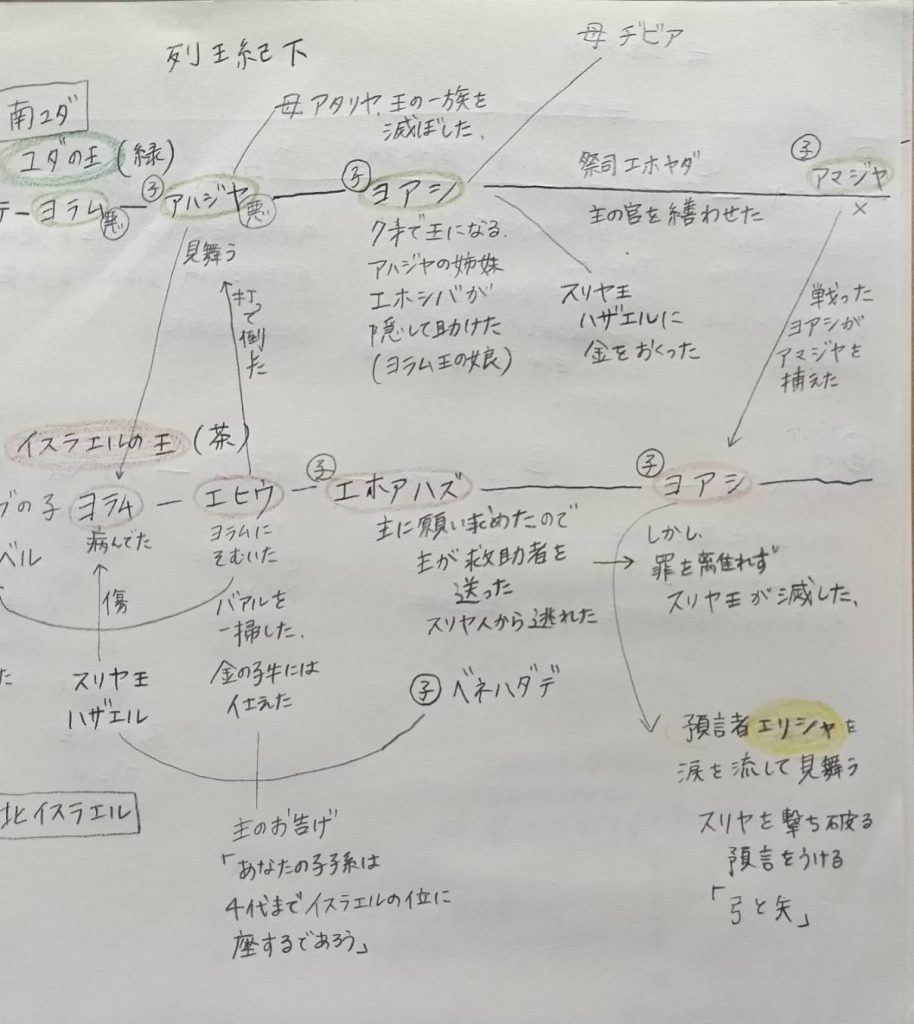 列王紀下
母 ヂビア
南ユダ
母 アタリヤ、王の一族を
滅ぼした、
ユダの王 (緑)
ヨラム 悪
子 アハジヤ 悪
子 ヨアシ
祭司エホヤダ
子
アマジヤ
×
主の宮を繕わせた
見舞う
打って倒した
7才で王になる、
アハジヤの姉妹
エホシバが
隠して助けた
(ヨラム王の娘)
スリヤ王
ハザエルに
金をおくった
戦った
ヨアシが
アマジヤを
捕えた
イスラエルの王 (茶)
ブの子 ヨラム
エヒウ
子 エホアハズ
子 ヨアシ
ベル
病んでた
ヨラムに
そむいた
主に願い求めたので
主が救助者を
送った
スリヤ人から逃れた
しかし、
罪を離れず
スリヤ王が滅した、
傷
バアルを
一掃した、
金の子牛には
仕えた
た
スリヤ王
ハザエル
子 ベネハダデ
預言者エリシャを
涙を流して見舞う
北イスラエル
スリヤを撃ち破る
預言をうける
「弓と矢」
主のお告げ
「あなたの子孫は
4代までイスラエルの位に
座するであろう」